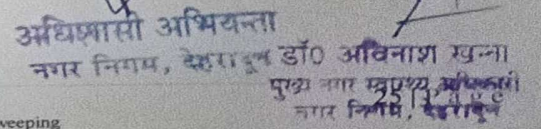 अधिशासी अभियन्ता
नगर निगम, देहरादून
डॉ0 अविनाश खन्ना
मुख्य नगर स्वास्थ्य अधिकारी
नगर निगम, देहरादून
weeping